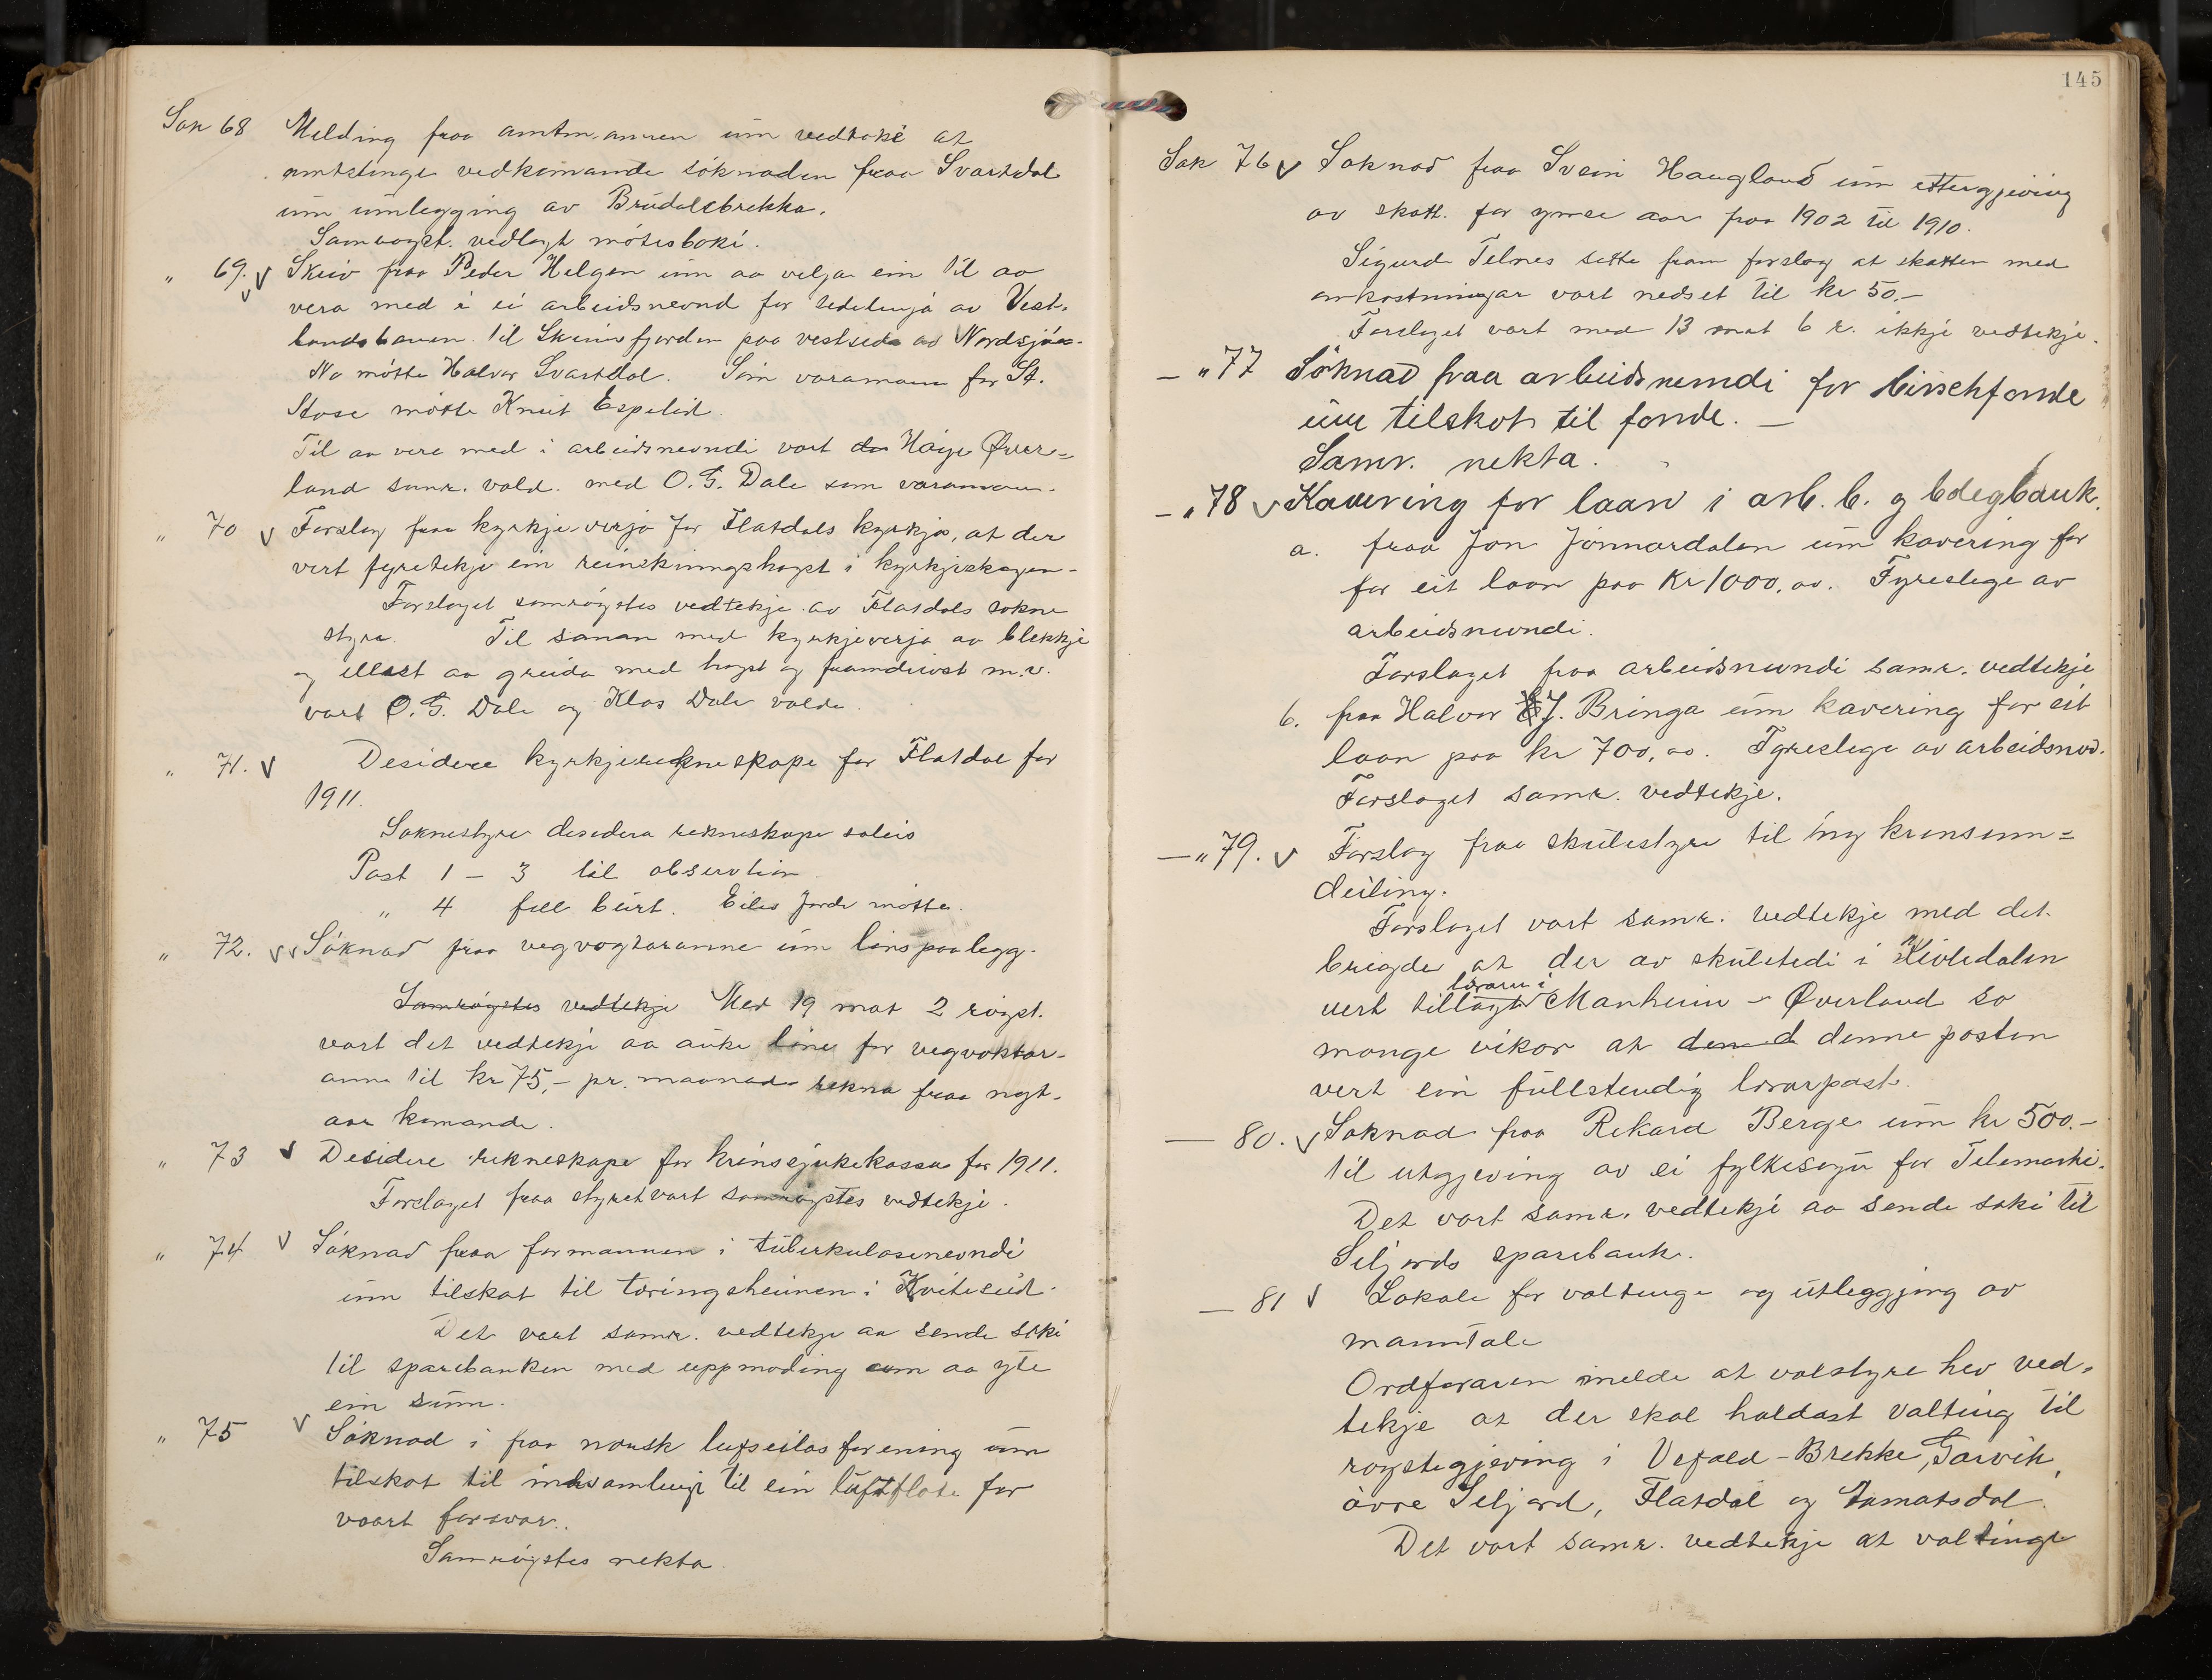 Sak 68 Melding fraa amtmannen um vedtaki at
amtstingi vedkomande söknaden fraa Svartdal
um umlegging av Brudalsbrekka.
Samrøyst. vedlagt mótesboki.
" 69. Skriv fraa Peder Helgen um aa velja ein til aa
vera med i ei arbeidsnevnd for sidelinja av Vest-
landsbanen til Skiensfjorden paa vestsida av Nordsjøa.
No mötte Halvor Svartdal. Som varamann for St.
Stose mötte Knut Espelid.
Til aa vera med i arbeidsnevndi vart Høye Øver-
land samr. vald. med O. G. Dale som varamann.
" 70 Forslag fraa kyrkjeverja for Flatdals kyrkja, at der
vert fyretekje ein reinskingshogst i kyrkjeskogen.
Forslaget samröystes vedtekje av Flatdals sokne
styre. Til saman med kyrkjeverja aa blekkje
og ellest aa greida med hogst og framdrivst m.v.
vart O. G. Dale og Klas Dale valde.
" 71. Desidere kyrkjerekneskape for Flatdal for
1911.
Soknestyre desidera rekneskape soleis
Post 1 - 3 til observation
" 4 fell burt. Eilev Jorde mötte.
" 72. Söknad fraa vegvogtaranne um lönspaalegg.
Samröystes vedtekje Med 19 mot 2 röyst.
vart det vedtekje aa auke löne for vegvoktar-
anne til kr 75,- pr. maanad rekna fraa nyt-
aar komande.
" 73 Desidere rekneskape for krinssjukekassa for 1911.
Forslaget fraa styret vart samröystes vedtekje.
" 74 Söknad fraa formannen i tuberkulosenevndi
um tilskot til tæringsheimen i Kviteseid.
Det vart samr. vedtekje aa sende saki
til sparebanken med uppmoding um aa yte
ein sum.
" 75 Söknad i fraa norsk luftseilasforening um
tilskot til innsamlingi til ein luftflote for
vaart forsvar.
Samröystes nekta.
145
Sak 76 Soknad fraa Svein Haugland um ettergjeving
av skatt. for ymse aar fraa 1902 til 1910.
Sigurd Telnes sette fram forslag at skatten med
omkostningar vart nedset til kr 50.-
Forslaget vart med 13 mot 6 r. ikkje vedtekje.
- " 77 Söknad fraa arbeidsnemdi for Cirschfonde
um tilskot til fonde. -
Samr. nekta.
- " 78 Kavering for laan i arb. b. og bdegbank.
a. fraa Jon Jönnardalen um kavering for
for eit laan paa Kr 1000,oo. Fyreslege av
arbeidsnevndi.
Forslaget fraa arbeidsnevndi samr. vedtekje
b. fraa Halvor J. Bringa um kavering for eit
laan paa kr 700,oo. Fyreslege av arbeidsnvd.
Forslaget samr. vedtekje.
- " 79. Forslag fraa skulestyre til ny krinsinn-
deiling.
Forslaget vart samr. vedtekje med det
brigde at der av skuletedi i Kivledalen
læraren i
vert tillagt Manheim - Øverland so
mange vikor at den d denne posten
vert ein fullstendig lærarpost.
- 80. Soknad fraa Rikard Berge um kr 500.-
til utgjeving av ei fylkesogu for Telemarki.
Det vart samr. vedtekje aa sende saki til
Seljords sparebank.
- 81 Lokale for valtinge og utleggjing av
manntale
Ordforaren melde at valstyre hev ved-
tekje at der skal haldast valting til
roystegjeving i Vefald - Brekke, Garvik,
övre Seljord, Flatdal og Aamotsdal.
Det vart samr. vedtekje at valtinge